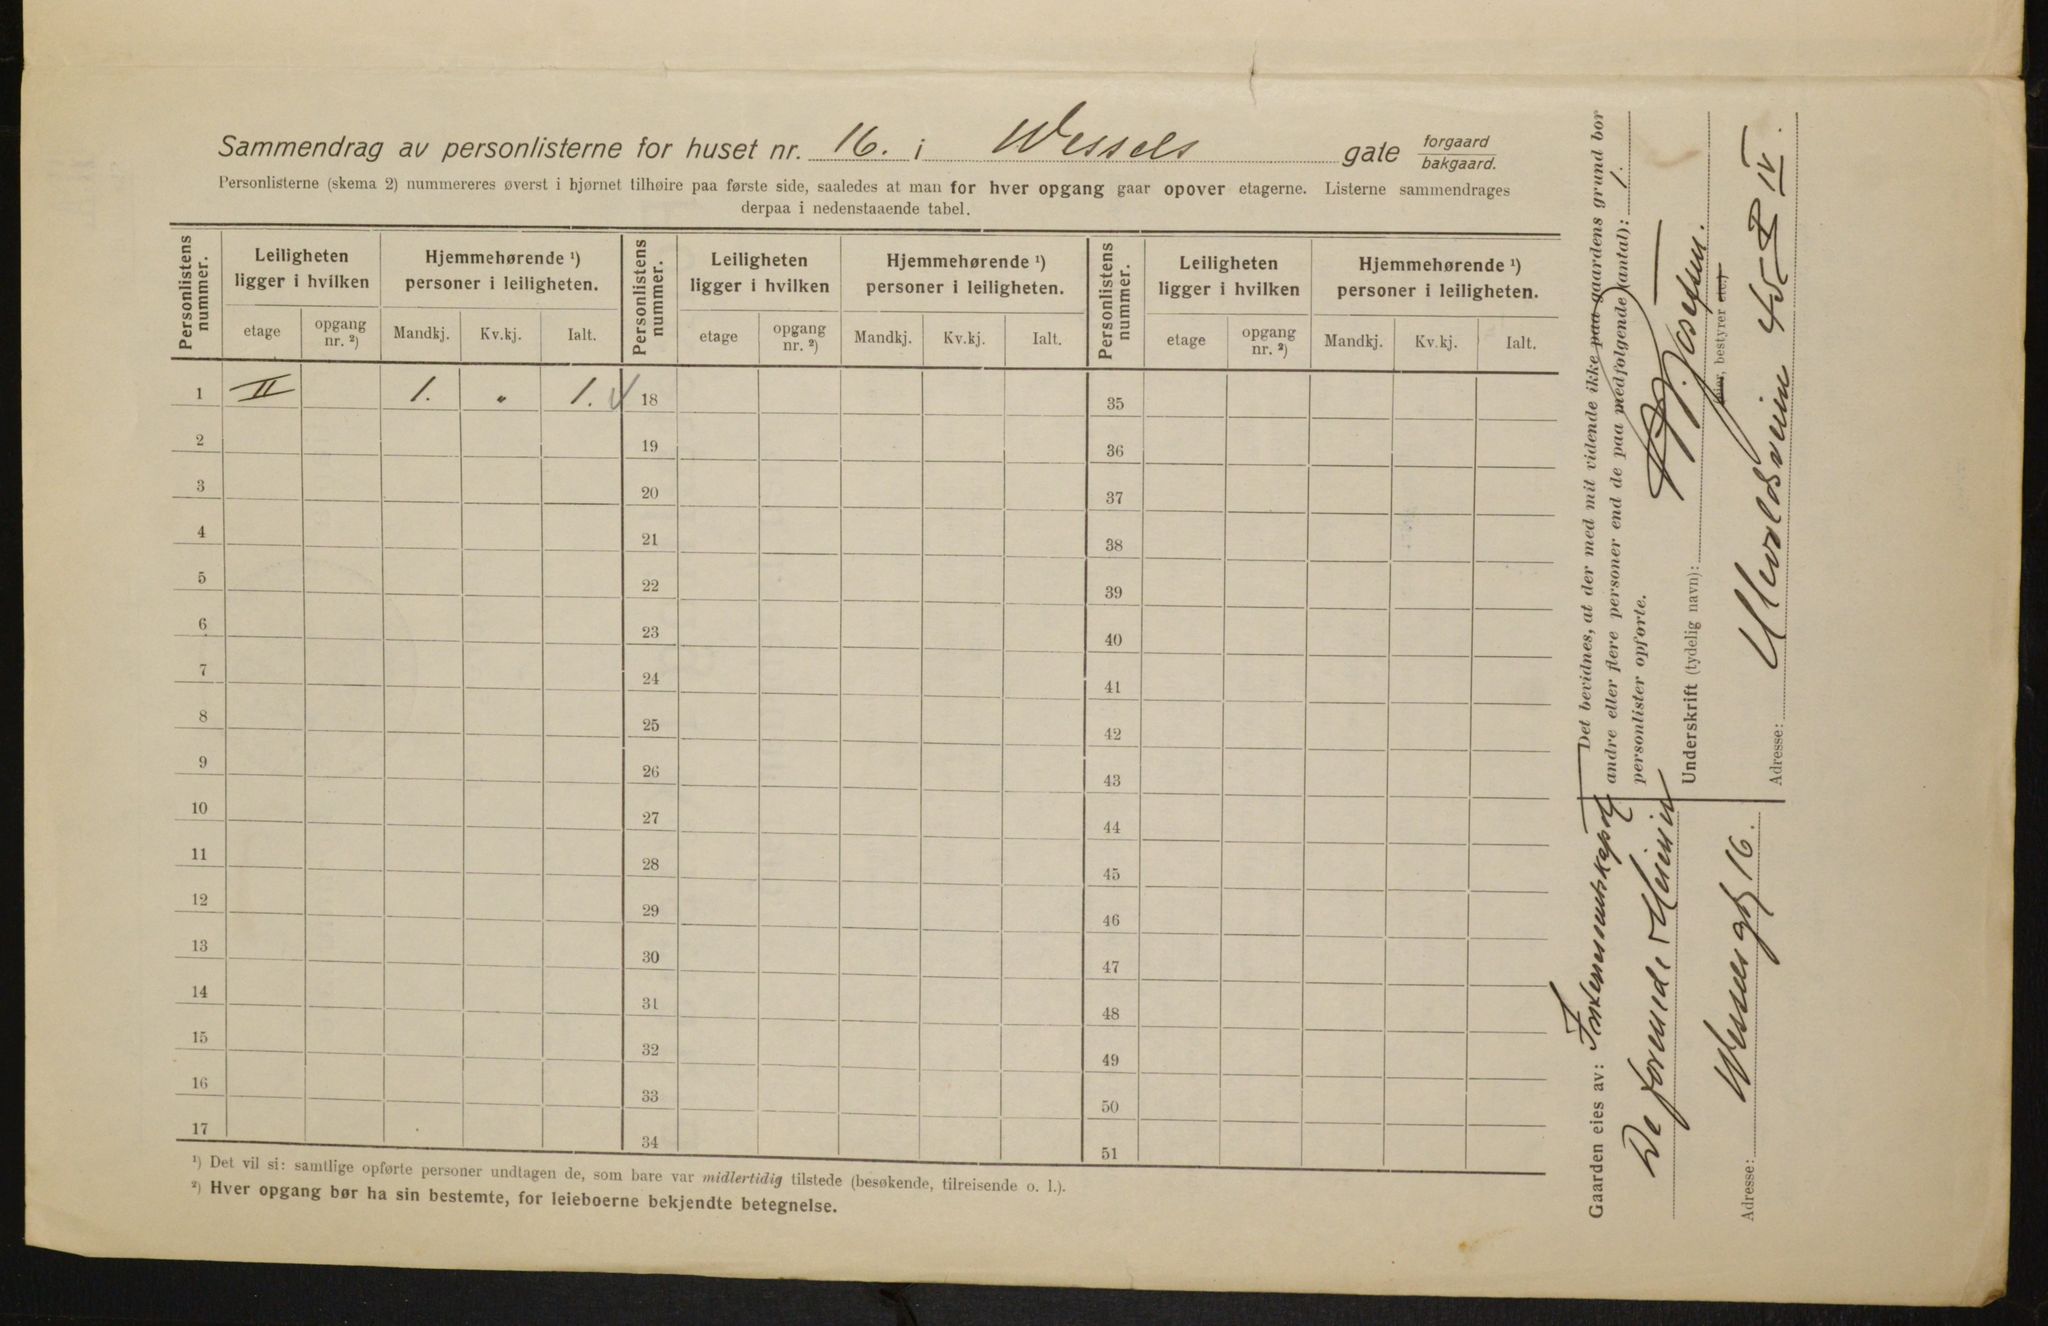 Sammendrag av personlisterne for huset nr. 16. i Wessels gate forgaard bakgaard.
Personlisterne (skema 2) nummereres øverst i hjørnet tilhøire paa første side, saaledes at man for hver opgang gaar opover etagerne. Listerne sammendrages
derpaa i nedenstaaende tabel.
Personlistens nummer. Leiligheten ligger i hvilken Hjemmehørende ¹) personer i leiligheten. Personlistens nummer. Leiligheten ligger i hvilken Hjemmehørende ¹) personer i leiligheten. Personlistens nummer. Leiligheten ligger i hvilken Hjemmehørende ¹) personer i leiligheten.
etage opgang nr. ²) Mandkj. Kv.kj. Ialt. etage opgang nr. ²) Mandkj. Kv.kj. Ialt. etage opgang nr. ²) Mandkj. Kv.kj. Ialt.
1 II 1. „ 1. 18 35
2 19 36
3 20 37
4 21 38
5 22 39
6 23 40
7 24 41
8 25 42
9 26 43
10 27 44
11 28 45
12 29 46
13 30 47
14 31 48
15 32 49
16 33 50
17 34 51
¹) Det vil si: samtlige opførte personer undtagen de, som bare var midlertidig tilstede (besøkende, tilreisende o. l.).
²) Hver opgang bør ha sin bestemte, for leieboerne bekjendte betegnelse.
Gaarden eies av:
De forenede Meieri
Adresse: Wesselsgt 16.
Det bevidnes, at der med mit vidende ikke paa gaardens grund bor
andre eller flere personer end de paa medfølgende (antal): 1.
personlister opførte.
Underskrift (tydelig navn): Josefsen.
(eier, bestyrer etc.)
Adresse: Uevoldsveien 45 IV.